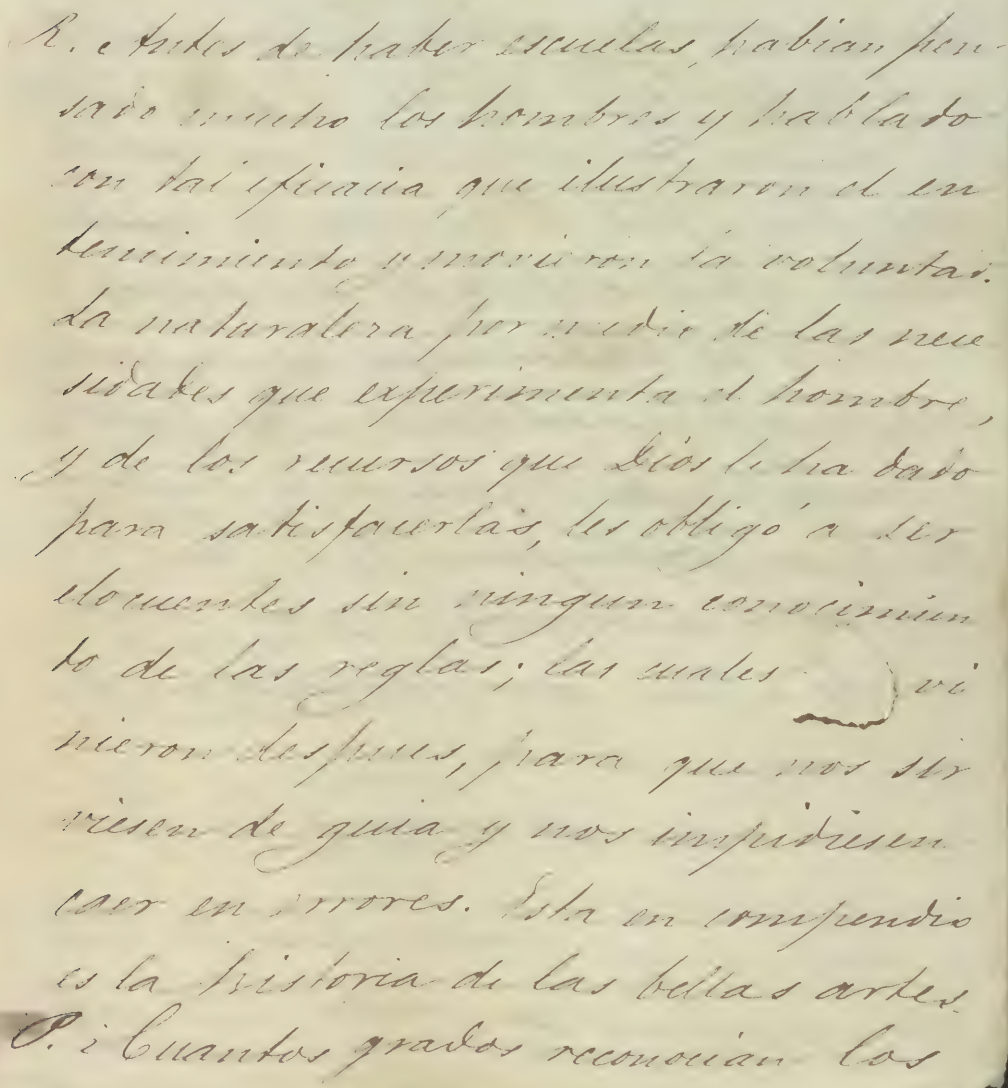 R. Antes de haber escuelas, habian pen-
sado mucho los hombres y hablado
con tal eficacia que ilustraron el en
tenimiento y movieron la voluntad.
La naturaleza por medio de las nece
sidades que experimenta el hombre,
y de los recursos que Dios le ha dado
para satisfacerlas, les obligó a ser
elocuentes sin ningun conocimien
to de las reglas; las cuales vi
nieron despues, para que nos sir
viesen de guia y nos impidiesen
caer en errores. Esta en compendio
es la historia de las bellas artes.
P. ¿Cuantos grados reconocian los